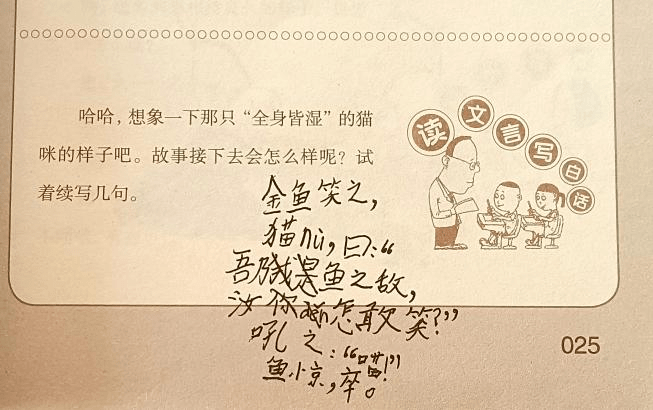 哈哈，想象一下那只“全身皆湿”的猫
咪的样子吧。故事接下去会怎么样呢？试
着续写几句。
读文言写白话
金鱼笑之，
猫nù，曰：“
吾是鱼之敌，
汝怎敢笑？”
吼之：“喵！”
鱼小京，卒。
025